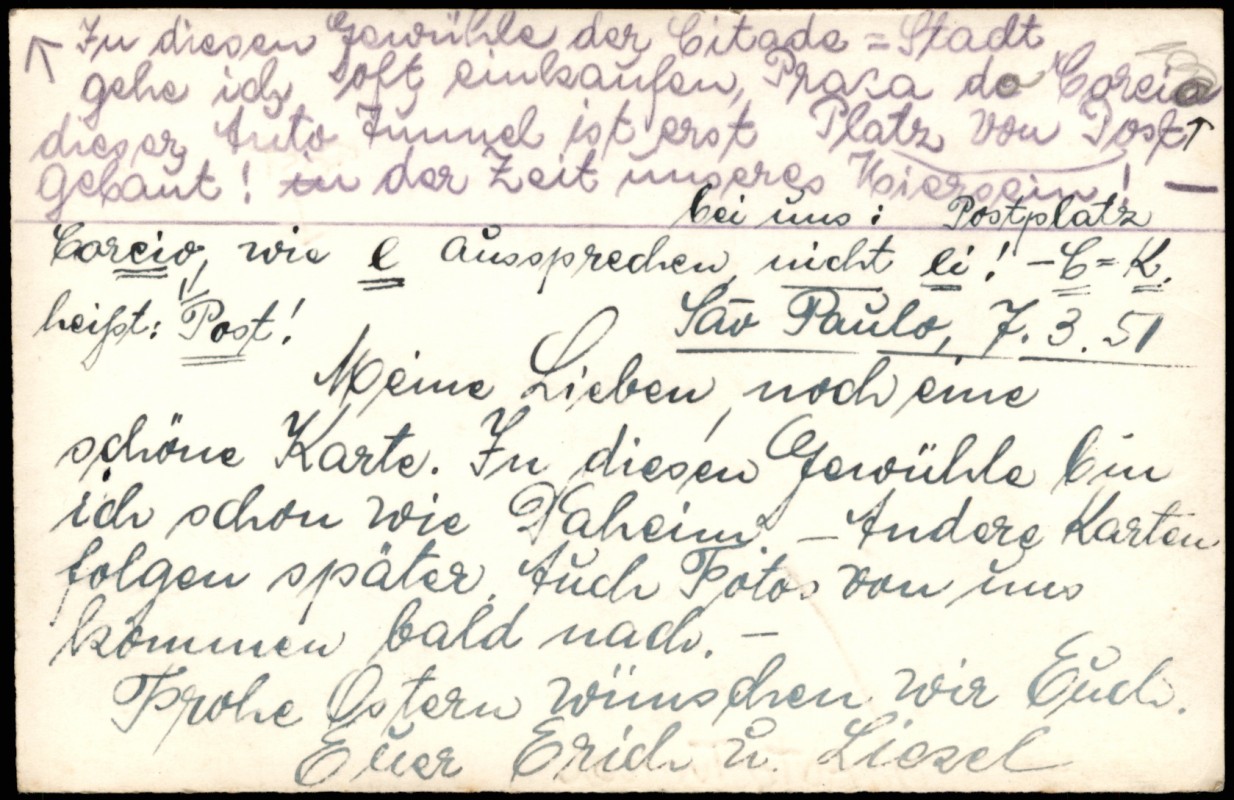 ↑ In diesen Gewühle der Citade = Stadt
gehe ich oft einkaufen, Prasa do Coreio
dieser Auto Tunnel ist erst Platz von Post ↑
gebaut! in der Zeit unseres Hiersein! —
bei uns: Postplatz
Coreio, wie e aussprechen, nicht ei! – C = K.
heißt: Post!
São Paulo, 7.3.51
Meine Lieben, noch eine
schöne Karte. In diesen Gewühle bin
ich schon wie Daheim. – Andere Karten
folgen später. Auch Fotos von uns
kommen bald nach. –
Frohe Ostern wünschen wir Euch.
Euer Erich u. Liesel